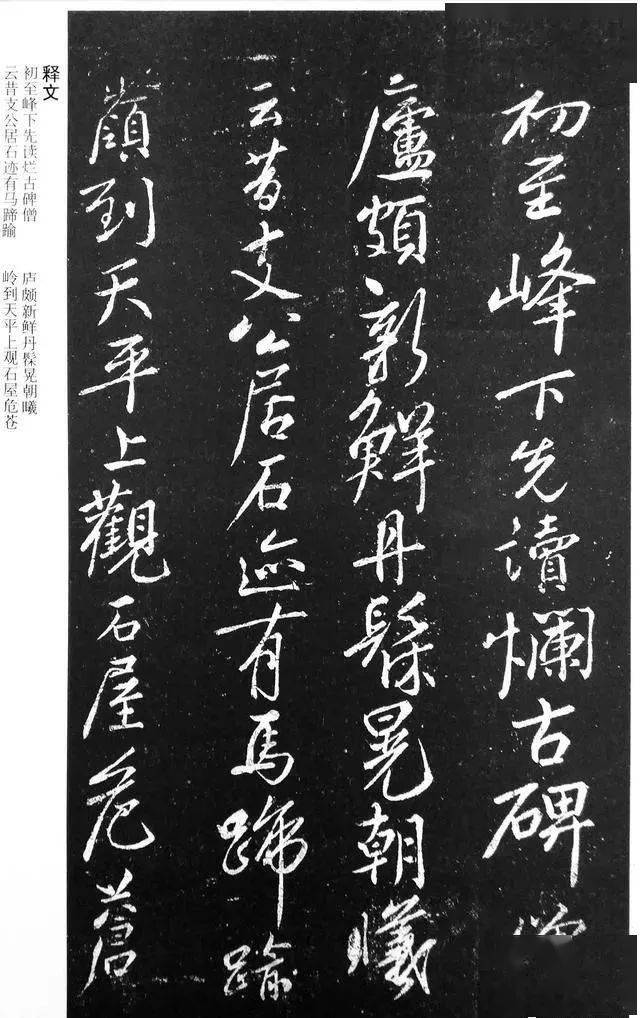 初至峰下先讀爛古碑僧
廬頗新鮮丹髹晃朝曦
云昔支公居石迹有馬蹄踰
嶺到天平上觀石屋危蒼
释文
初至峰下先读烂古碑僧　庐颇新鲜丹髹晃朝曦
云昔支公居石迹有马蹄踰　岭到天平上观石屋危苍